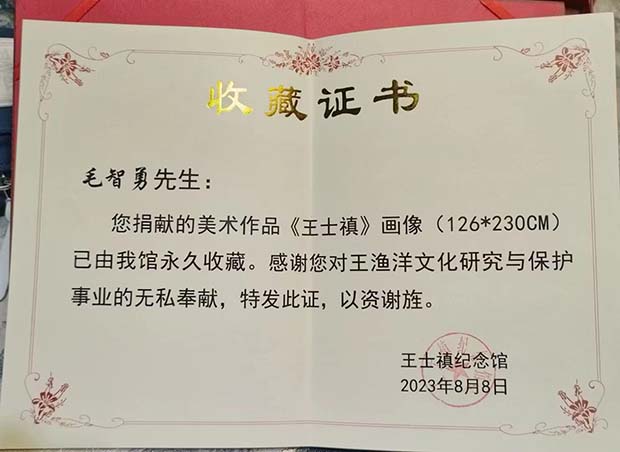 收藏证书
毛智勇先生：
您捐献的美术作品《王士禛》画像（126*230CM）
已由我馆永久收藏。感谢您对王渔洋文化研究与保护
事业的无私奉献，特发此证，以资谢旌。
王士禛纪念馆
2023年8月8日